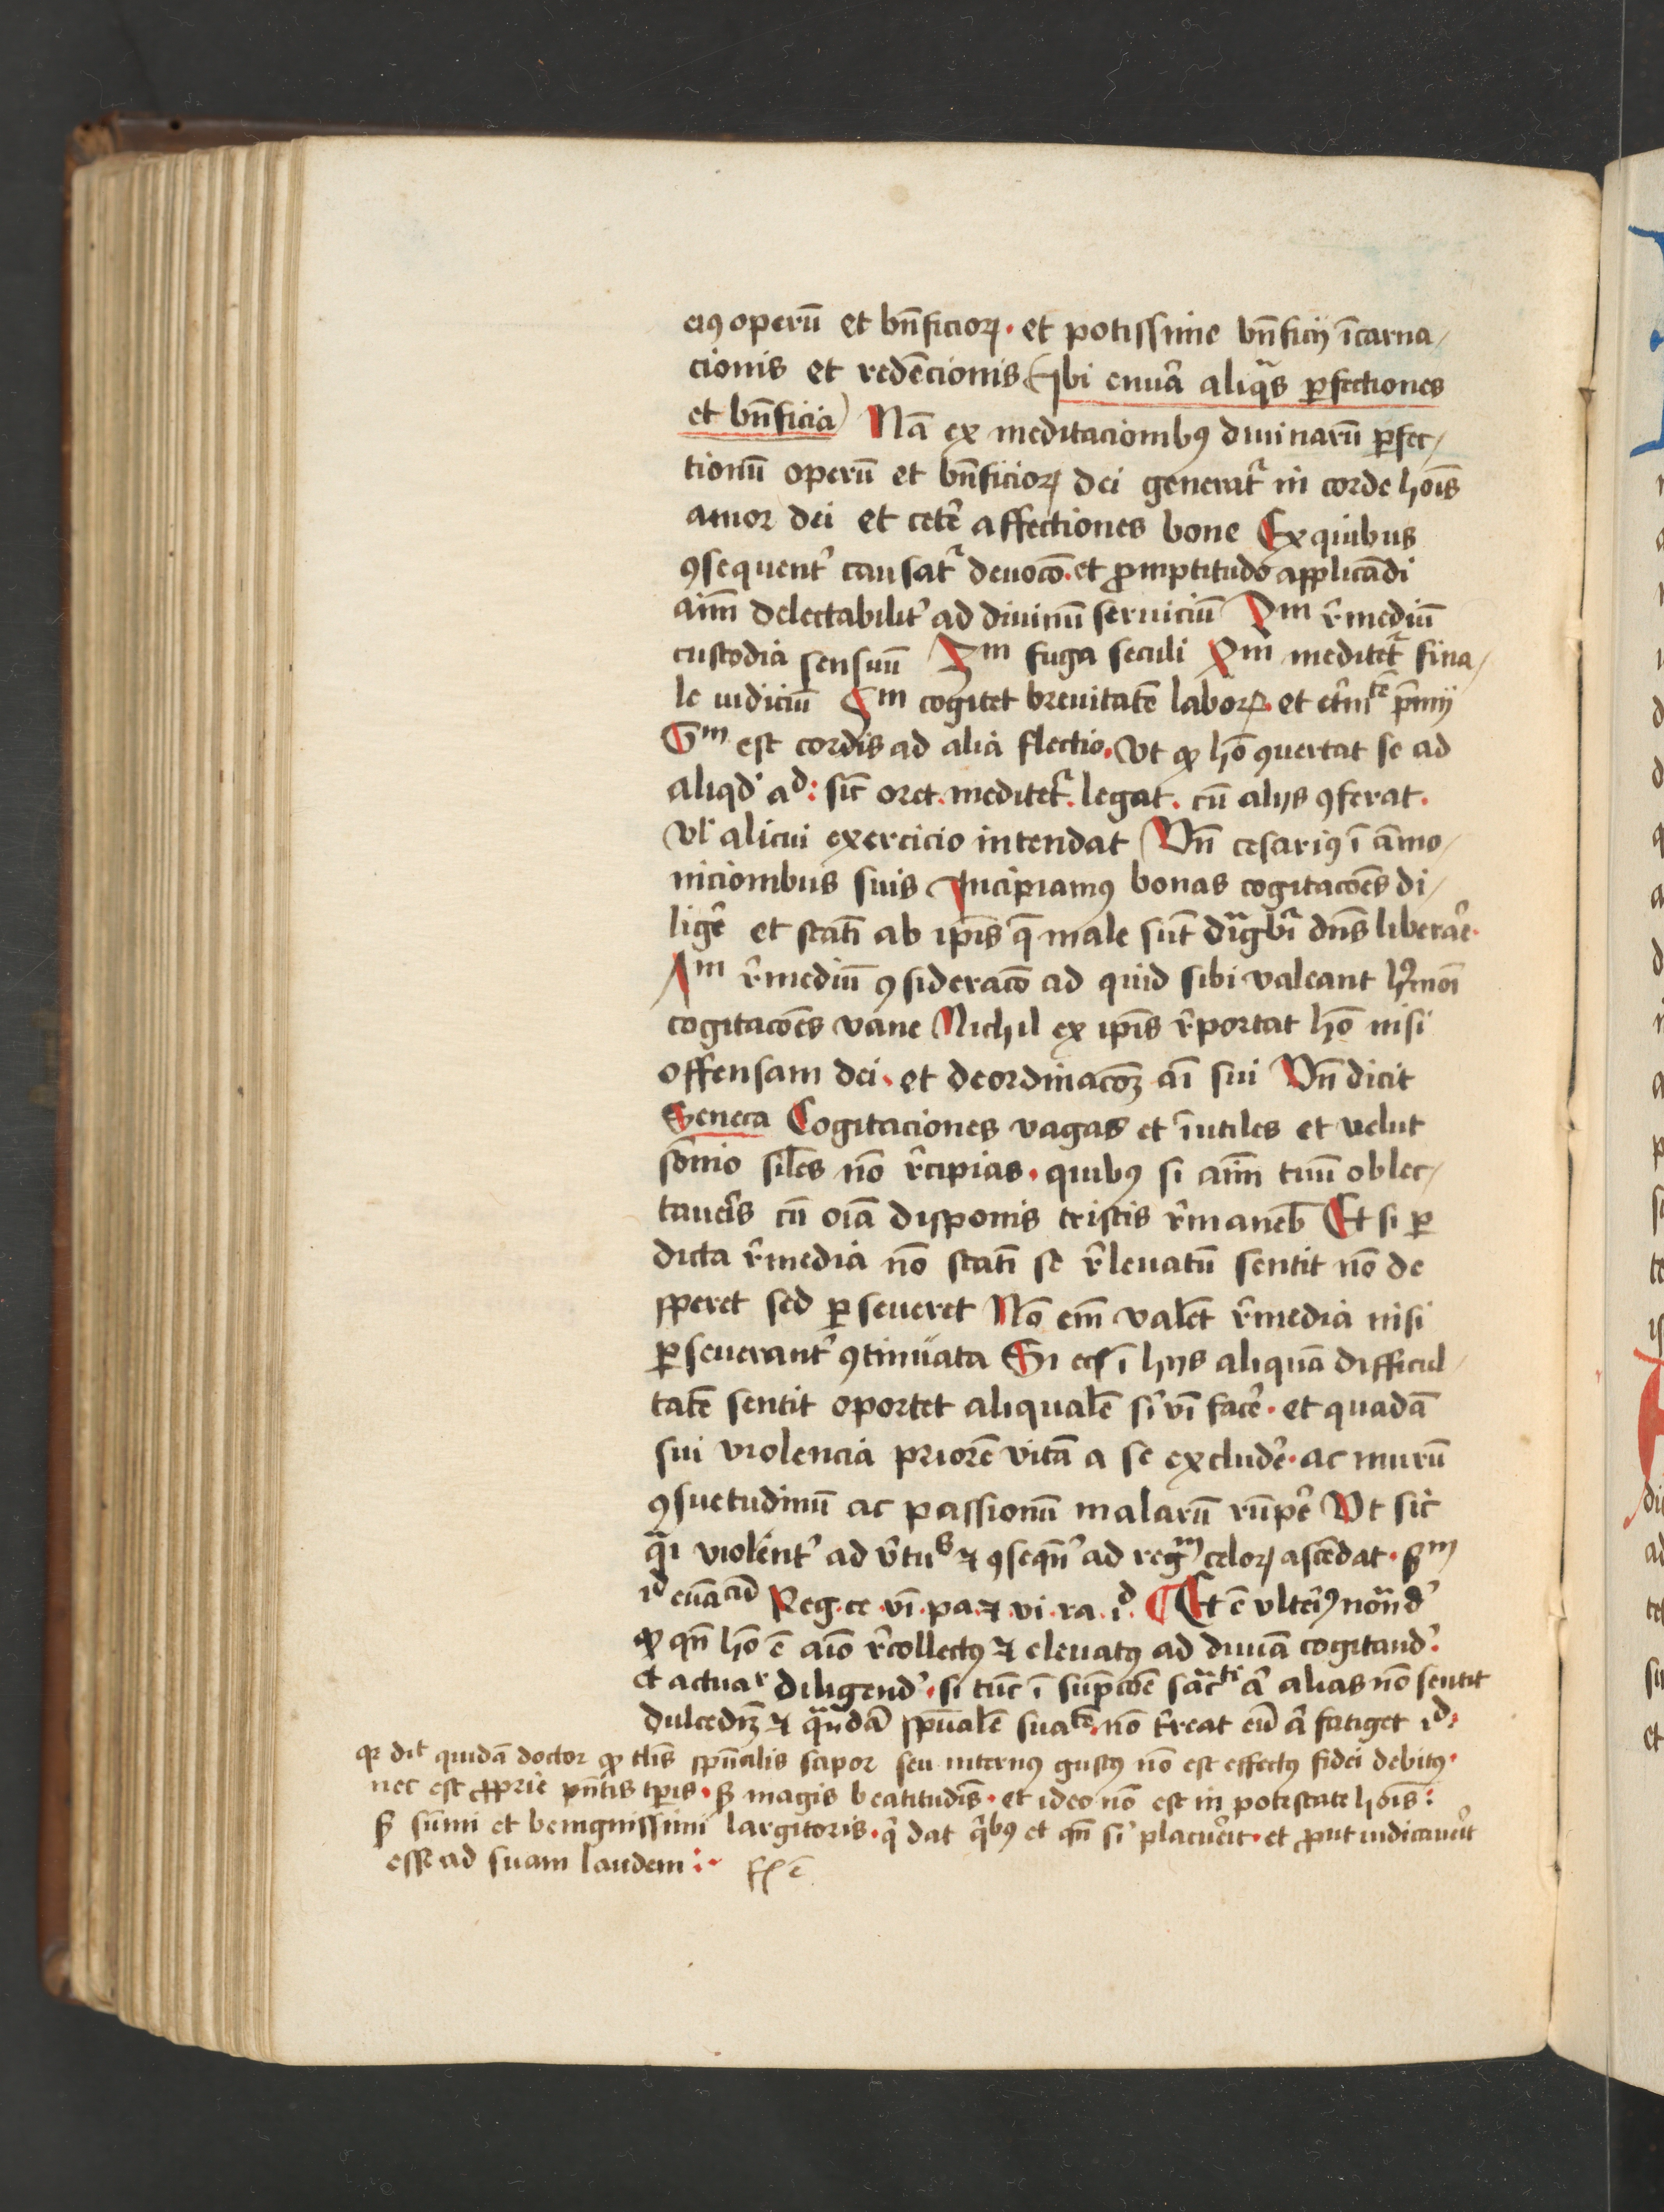 eiꝰ operū et bn̄ficioꝝ · et potissime bn̄ficij īcarna/
cionis et redēcionis (ibi enūa aliqͣs ꝑfectiones
et bn̄ficia) Nā ex meditacionibꝰ diuinarū ꝑfec/
tionū operū et bn̄ficioꝝ dei generat᷑ in corde hoīs
amor dei et cete᷑ affectiones bone Ex quibus
ꝯsequent᷑ causat᷑ deuoc̄o · et ꝓmptitudo applicādi
aīm delectabilit᷑ ad diuinū seruiciū 2m r᷑mediū
custodia sensuū 3m fuga seculi 4m meditet᷑ fina/
le iudiciū 5m cogitet breuitatē laboꝝ · et et᷑nitē p̄mij
6m est cordis ad alia flectio · Vt ꝙ hō ꝯuertat se ad
aliqd᷑ ad : sic̄ oret · meditet᷑ · legat · cū alijs ꝯferat ·
vl᷑ alicui exercicio intendat Vn̄ cesariꝰ ī āmo/
nicionibus suis Incipiamꝰ bonas cogitac̄oes di/
lige᷑ et statī ab ip̄is q̄ male sūt dignabit᷑ dn̄s liberare᷑ ·
7m r᷑mediū ꝯsiderac̄o ad quid sibi valeant hꝰmoī
cogitac̄oes vane Nichil ex ip̄is r᷑portat hō nisi
offensam dei · et deordinac̄oꝫ aī sui Vn̄ dicit
Seneca Cogitaciones vagas et īutiles et velut
sōnio sil̄es nō r᷑cipias · quibꝰ si aīm tuū oblec/
taueris cū oīa disponis tristis r᷑maneb̄ Et si ꝑ
dicta r᷑media nō statī se r᷑leuatū sentit nō de
speret sed ꝑseueret Nō em̄ valēt r᷑media nisi
ꝑseuerant᷑ ꝯtinuata Si ec̄ ī hijs aliquā difficul/
tatē sentit oportet aliqualē si᷑ vī face᷑ · et quadā
sui violencia priorē vitā a se exclude᷑ · ac murū
ꝯsuetudinū ac passionū malarū rūpe᷑ Vt sic
qͣi violent᷑ ad v᷑tus ⁊ ꝯseqn̄᷑ ad regm celoꝝ ascēdat · ẜm
id Reg · ce · vī · pa · ⁊ vi · ra · id · ¶ Et ē vlteriꝰ notand᷑
ꝙ qn̄ hō ē aīo r᷑collectꝰ ⁊ eleuatꝰ ad diuīa cogitand᷑ ·
et actuar diligend᷑ · si tūc ī sūpc̄oe sac̄ti ā alias nō sentit
dulcedīꝫ ⁊ quandā spūalē suatē · nō t᷑reat eū ā fatiget id :
qꝛ dit quidā doctor ꝙ tl̄is spūalis sapor seu internꝰ gustꝰ nō est effectꝰ fidei debitꝰ ·
nec est ꝓprie pn̄tis tp̄is · ẜ magis beatitudīs · et ideo nō est in potestate hoīs :
ẜ sūmi et benignissimi largitoris · q᷑ dat q᷑bꝰ et qn̄ si᷑ placuerit · et ꝓut iudicauerit
esse ad suam laudem :·